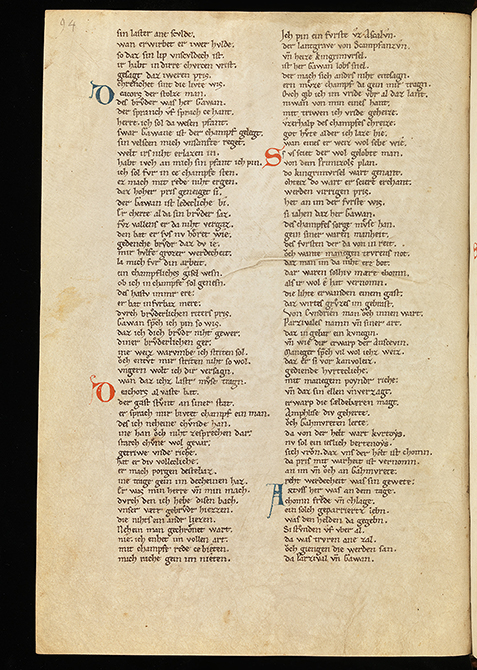 94
sin laster ane scvlde.
wan erwirbet er iwer hvlde.
so daz sin lip vnscvldech ist.
ir habt in dirre chvrcen vrist.
gesagt daz iweren pris.
Beacors der stolze man.
des brvder was her Gawan.
der spranch vf sprach ce hant.
herre. ich sol da wesen pfant.
swar Gawane ist der champf gelegt.
sin velscen mich vnsanfte reget.
welt irs niht erlazen in.
habt iveh an mich sin pfant ich pin.
ich sol fvr in ce champfe sten.
ez mach mit rede niht ergen.
daz hoher pris geneiget si.
der Gawan ist lederliche bi.
Er cherte al da sin brvder saz.
fvz vallens er da niht vergaz.
den bat er svs nv horet wie.
gedenche brvder daz dv ie.
mir hvlfe grozer werdecheit.
la mich fvr din arbeit.
ein champfliches gisel wesn.
ob ich in champfe sol genesn.
des hastv immer ere.
er bat in fvrbaz mere.
dvrch brvderlichen riters pris.
Gawan sprach ich pin so wis.
daz ich dich brvder niht gewer.
diner brvderlichen ger.
ine weiz warvmbe ich striten sol.
och entvt mir striten niht so wol.
vngern wolt ich dir versagn.
wan daz ichz laster mvse tragn.
Beachors al vaste bat.
der gast stvnt an siner stat.
er sprach mir bivtet champf ein man.
des ich neheine chvnde han.
ine han och niht zesprechen dar.
starch chvne wol gevar.
getriwe vnde riche.
hat er div volleclich.
er mach porgen destebaz.
ine trage gein im decheinen haz.
Er waz min herre vn min mach.
dvrch den ich hebe disen bach.
vnser vater gebrvder hiezzen.
die nihts ein ander liezen.
Nehein man gechronet wart.
nie. ich enhet im vollen art.
mit champfe rede ce bieten.
mich rache gein im nieten.
Ich pin ein fvrste vz Ascalvn.
der lantgrave von Scampfanzvn.
vn heize kingrimvrsel.
ist her Gawan lobs snel.
der mach sich anders niht entsagn.
ern mvze champf da gein mir tragn.
och gib ich im vride vber al daz lant.
niwan von min eines hant.
mit triwen ich vride geheize.
vzerhalp des champfes chreize.
got hvte alder ich laze hie.
wan eines er werz wol sebe wie.
Svs sciet der wol gelobte man.
von dem plimizols plan.
do kingrimvrsel wart genant.
ohteiz do wart er sciere erchant.
werden virrigen pris.
het an im der fvrste wis.
si iahen daz her Gawan.
des champfes sorge mvse han.
gein siner waren manheit.
des fvrsten der da von in reit.
och wante manegen trvrens not.
daz man im da niht ere bot.
dar waren solhiv mære chomn.
als ir wol e hat vernomn.
die lihte erwanden einem gast.
daz wirtes grvzes im gebrast.
Von Cvndrien man och innen wart.
Parzivales namn vn siner art.
daz in gebar ein kvnegin.
vn wie die erwarp der Anscevin.
Maneger sprach vil wol ichz weiz.
daz er si vor kanvoleiz.
gediende hvrtecliche.
mit manegem poynder riche.
vn daz sin ellen vnverzagt.
erwarp die sældebæren magt.
Amphlise div geherte.
och Gahmvreten lerte.
da von der helt wart kvrtoys.
nv sol ein ieslich bertenoys.
sich vrovn. daz vns der helt ist chomn.
da pris mit warheit ist vernomn.
an im vn och an Gahmvrete.
reht werdecheit was sin gewete.
Artvss her was an dem tage.
chomn frevde vn chlage.
ein solch geparriertz lebn.
was den helden da gegebn.
Si stvnden vf vber al.
da was trvren ane zal.
och giengen die werden san.
da Parzival vn Gawan.